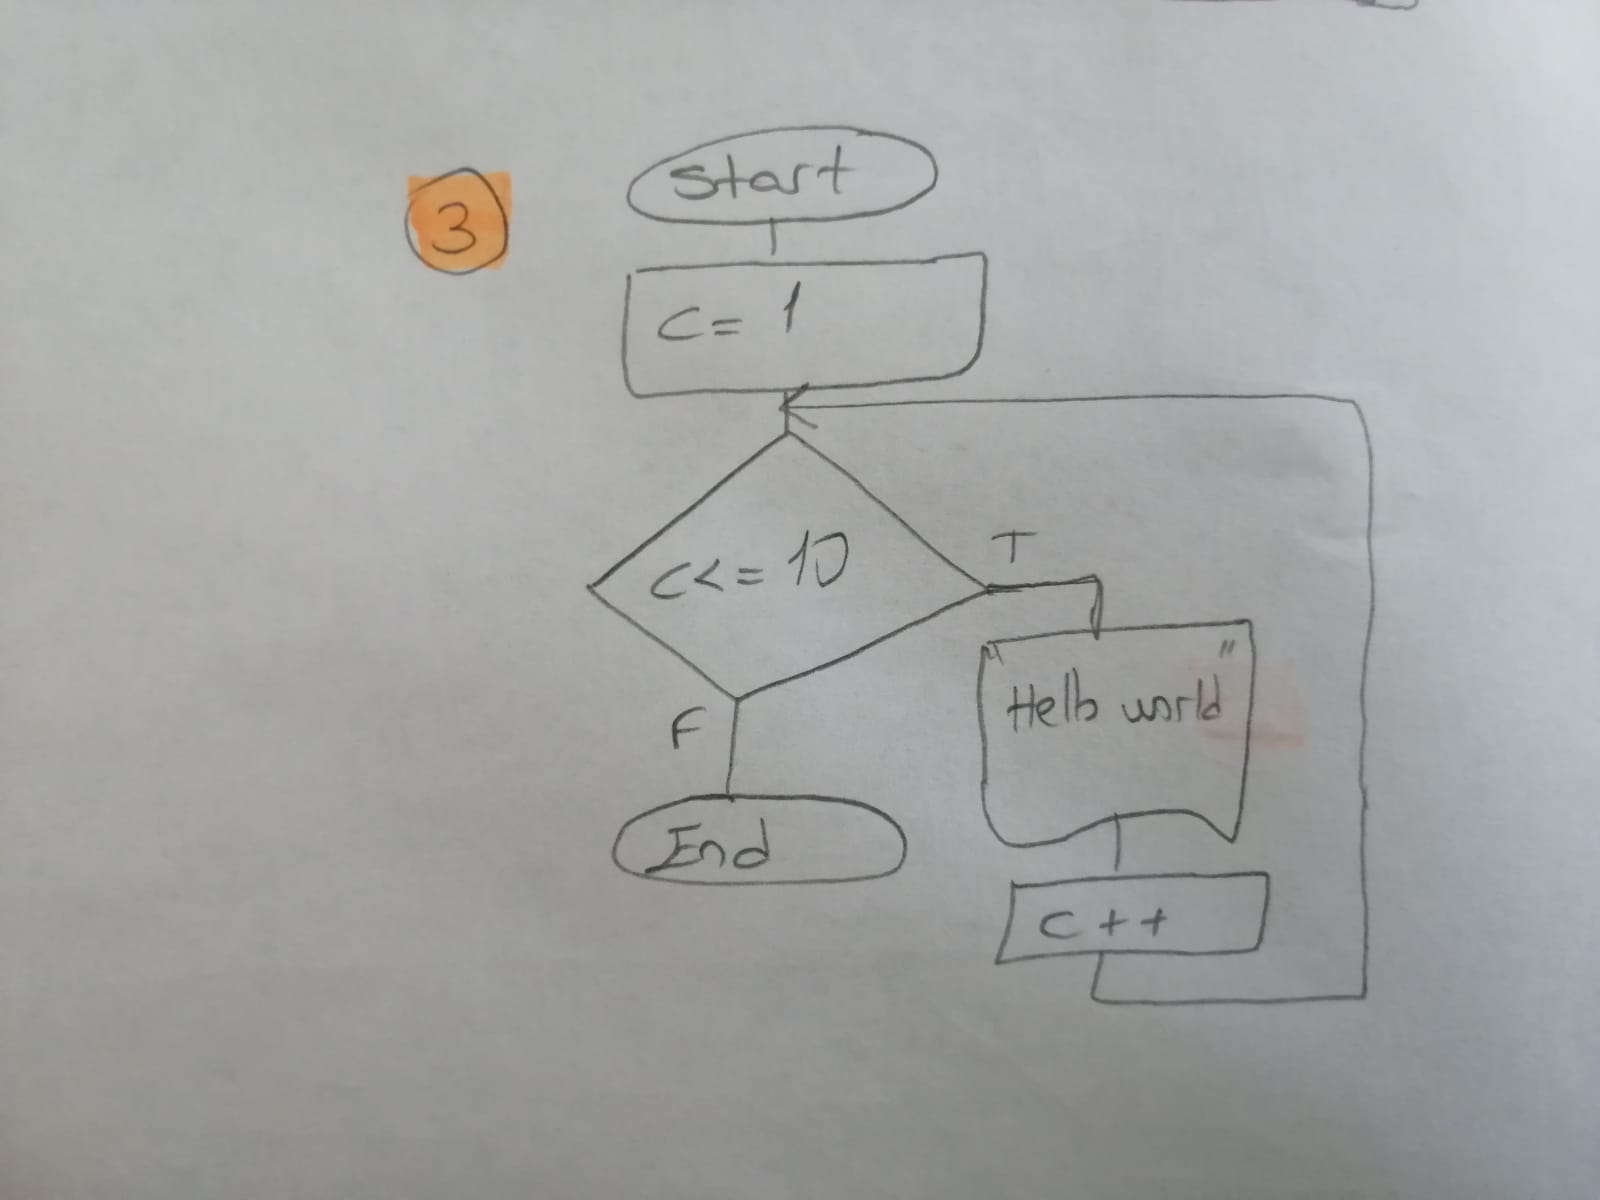 3
Start
C = 1
C <= 10
T
F
"Hello world"
End
C++